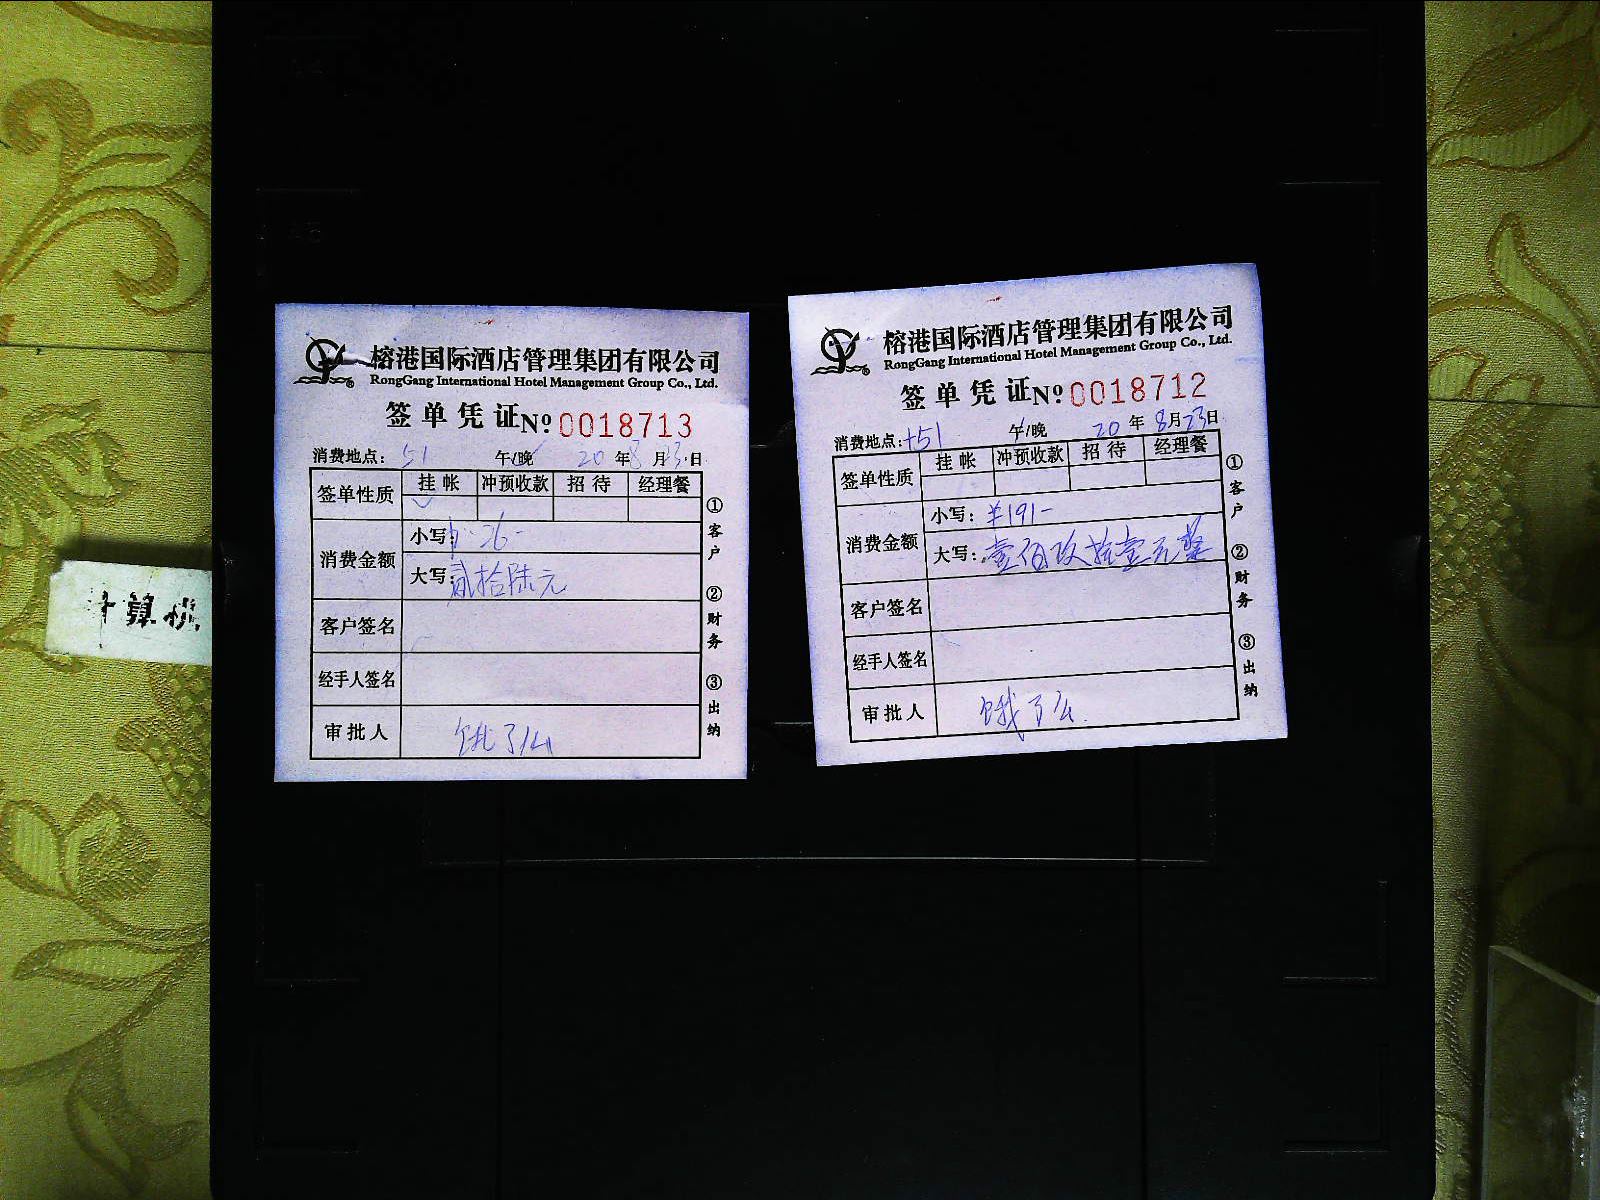 榕港国际酒店管理集团有限公司
RongGang International Hotel Management Group Co., Ltd.
签单凭证 №0018713
消费地点: 51 午/晚 20 年 8 月 23 日
签单性质 挂帐 冲预收款 招待 经理餐
消费金额
小写: 26-
大写: 贰拾陆元
客户签名
经手人签名
审批人 饿了么
①客户 ②财务 ③出纳
榕港国际酒店管理集团有限公司
RongGang International Hotel Management Group Co., Ltd.
签单凭证 №0018712
消费地点: +51 午/晚 20 年 8月23日
签单性质 挂帐 冲预收款 招待 经理餐
消费金额
小写: ¥191-
大写: 壹佰玖拾壹元整
客户签名
经手人签名
审批人 饿了么
①客户 ②财务 ③出纳
算